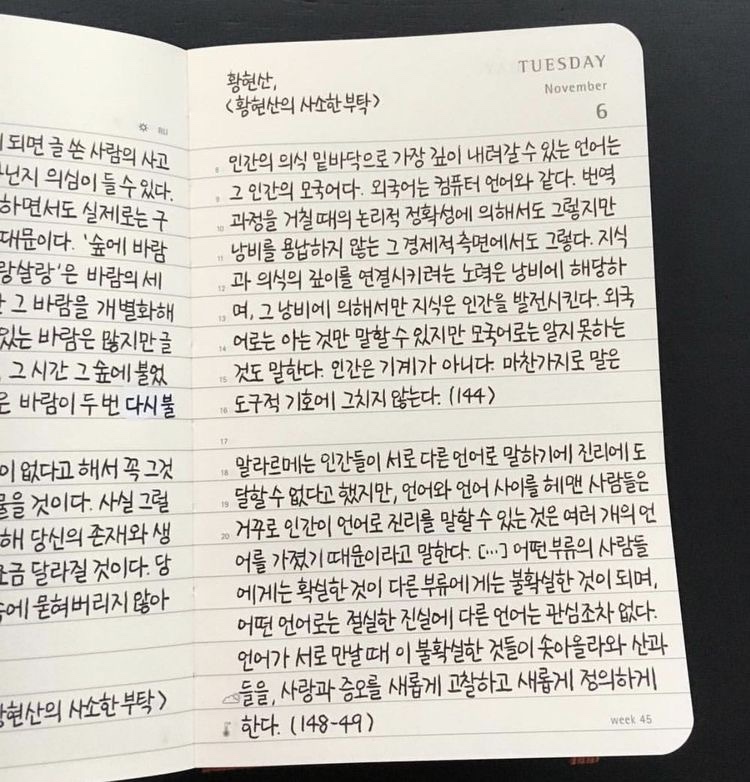 RU
되면 글 쓴 사람의 사고
닌지 의심이 들 수 있다.
하면서도 실제로는 구
때문이다. '숲에 바람
랑살랑'은 바람의 세
그 바람을 개별화해
있는 바람은 많지만 글
그 시간 그 숲에 불었
은 바람이 두 번 다시 불
이 없다고 해서 꼭 그것
물을 것이다. 사실 그럴
해 당신의 존재와 생
조금 달라질 것이다. 당
속에 묻혀버리지 않아
황현산의 사소한 부탁>
TUESDAY
November
6
황현산,
<황현산의 사소한 부탁>
8 인간의 의식 밑바닥으로 가장 깊이 내려갈 수 있는 언어는
9 그 인간의 모국어다. 외국어는 컴퓨터 언어와 같다. 번역
10 과정을 거칠 때의 논리적 정확성에 의해서도 그렇지만
11 낭비를 용납하지 않는 그 경제적 측면에서도 그렇다. 지식
12 과 의식의 깊이를 연결시키려는 노력은 낭비에 해당하
13 며, 그 낭비에 의해서만 지식은 인간을 발전시킨다. 외국
14 어로는 아는 것만 말할 수 있지만 모국어로는 알지 못하는
15 것도 말한다. 인간은 기계가 아니다. 마찬가지로 말은
16 도구적 기호에 그치지 않는다. (144)
17
18 말라르메는 인간들이 서로 다른 언어로 말하기에 진리에 도
19 달할 수 없다고 했지만, 언어와 언어 사이를 헤맨 사람들은
20 거꾸로 인간이 언어로 진리를 말할 수 있는 것은 여러 개의 언
어를 가졌기 때문이라고 말한다. [...] 어떤 부류의 사람들
에게는 확실한 것이 다른 부류에게는 불확실한 것이 되며,
어떤 언어로는 절실한 진실에 다른 언어는 관심조차 없다.
언어가 서로 만날 때 이 불확실한 것들이 솟아올라와 산과
들을, 사랑과 증오를 새롭게 고찰하고 새롭게 정의하게
한다. (148-49)
week 45